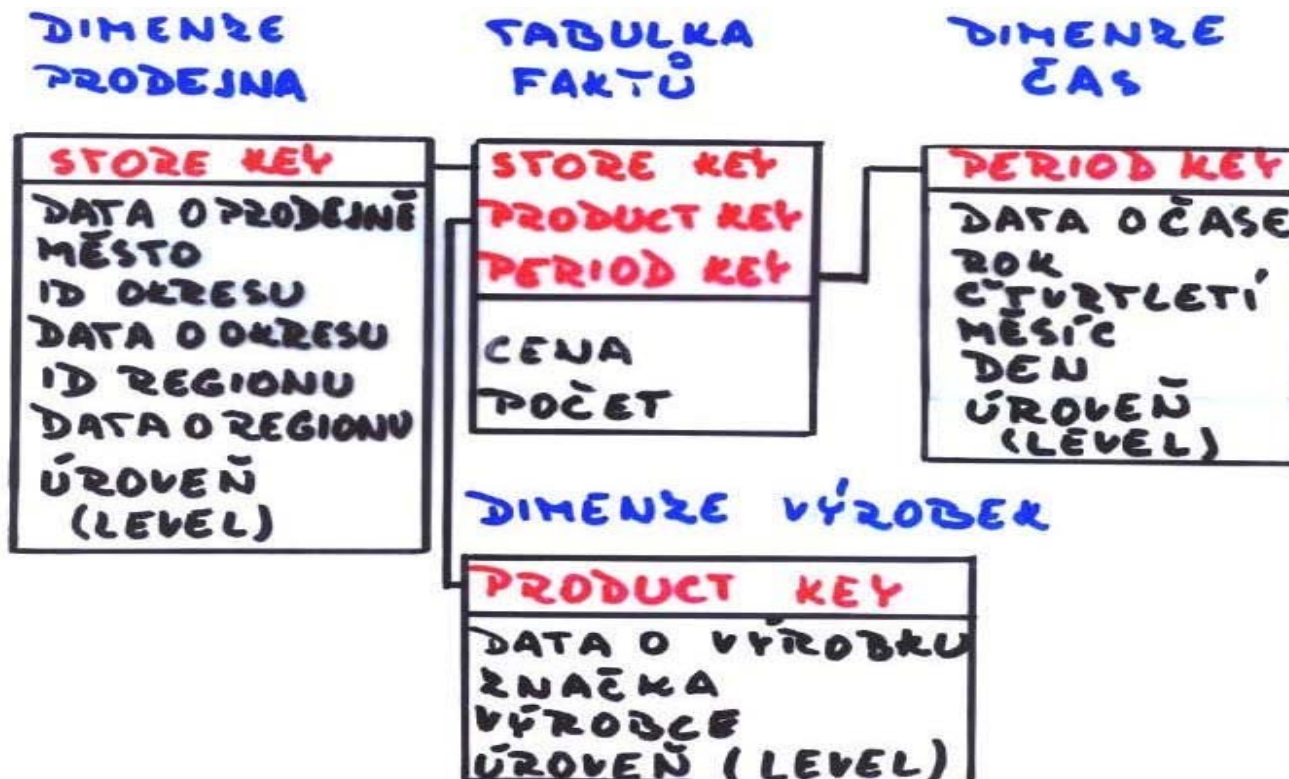 DIMENZE
PRODEJNA
STORE KEY
DATA O PRODEJNĚ
MĚSTO
ID OKRESU
DATA O OKRESU
ID REGIONU
DATA O REGIONU
ÚROVEŇ
(LEVEL)
TABULKA
FAKTŮ
STORE KEY
PRODUCT KEY
PERIOD KEY
CENA
POČET
DIMENZE
ČAS
PERIOD KEY
DATA O ČASE
ROK
ČTVRTLETÍ
MĚSÍC
DEN
ÚROVEŇ
(LEVEL)
DIMENZE VÝROBEK
PRODUCT KEY
DATA O VÝROBKU
ZNAČKA
VÝROBCE
ÚROVEŇ (LEVEL)